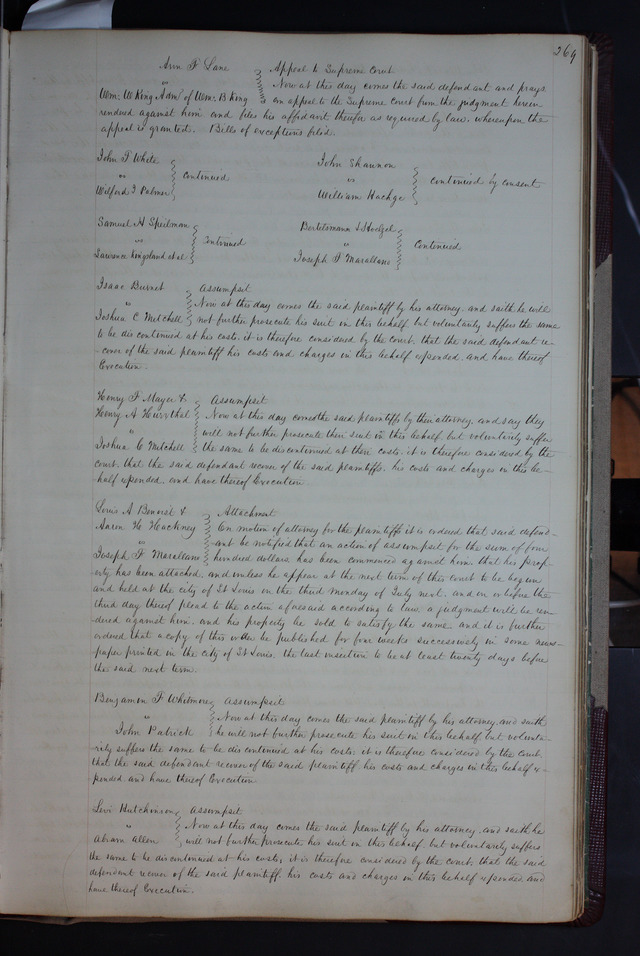 269
Ann F Lane } Appeal to Supreme Court
vs } Now at this day comes the said defendant and prays
Wm: W King Adm of Wm: B King } an appeal to the Supreme Court from the judgment herein
rendered against him and files his affidavit therefor as required by law. whereupon the
appeal is granted. Bills of exceptions filed.
John T White
vs } Continued
Wilford J Palmer
John Shannon
vs } Continued by consent
William Hachge
Samuel H Speilman
vs } Continued
Lawrence Kingsland et al
Bertelsmann & Hoelzel
vs } Continued
Joseph F Marallano
Isaac Burnet } Assumpsit
vs } Now at this day comes the said plaintiff by his attorney. and saith he will
Joshua C Mitchell } not further prosecute his suit in this behalf. but voluntarily suffers the same
to be discontinued at his costs. it is therefore considered by the court. that the said defendant re-
-cover of the said plaintiff his costs and charges in this behalf expended. and have thereof
Execution.
Henry F Mayer & } Assumpsit
Henry A Hurxthal } Now at this day comes the said plaintiffs by their attorney. and say they
vs } will not further prosecute their suit in this behalf. but voluntarily suffer
Joshua C Mitchell } the same to be discontinued at their costs. it is therefore considered by the
court. that the said defendant recover of the said plaintiffs. his costs and charges in this be-
half expended. and have thereof Execution
Louis A Benoist & } Attachment
Aaron H Hackney } On motion of attorney for the plaintiffs it is ordered that said defend-
vs } ant be notified that an action of assumpsit for the sum of four
Joseph F Marallano } hundred dollars. has been commenced against him. that his prop-
erty has been attached. and unless he appear at the next term of this court to be begun
and held at the city of St Louis on the third Monday of July next. and on or before the
third day thereof plead to the action aforesaid according to law. a judgment will be ren-
dered against him. and his property be sold to satisfy the same. and it is further
ordered that a copy of this order be published for four weeks successively in some news-
paper printed in the city of St Louis. the last insertion to be at least twenty days before
the said next term.
Benjamin F Whitmore } Assumpsit
vs } Now at this day comes the said plaintiff by his attorney. and saith
John Patrick } he will not further prosecute his suit in this behalf. but volunta-
rily suffers the same to be discontinued at his costs: it is therefore considered by the court.
that the said defendant recover of the said plaintiff. his costs and charges in this behalf ex-
pended and have thereof Execution
Levi Hutchinson } Assumpsit
vs } Now at this day comes the said plaintiff by his attorney. and saith he
Abram Allen } will not further prosecute his suit in this behalf. but voluntarily suffers
the same to be discontinued at his costs; it is therefore considered by the court. that the said
defendant recover of the said plaintiff. his costs and charges in this behalf expended. and
have thereof Execution.